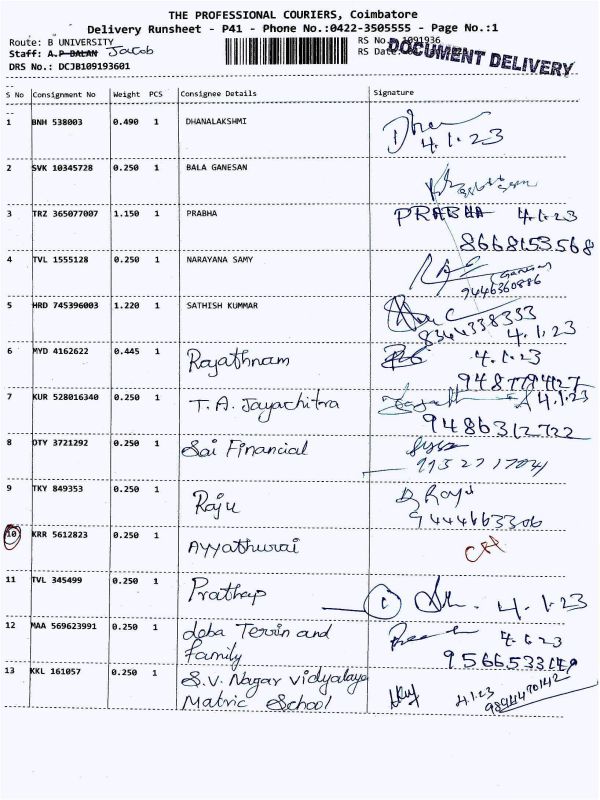 THE PROFESSIONAL COURIERS, Coimbatore
Delivery Runsheet - P41 - Phone No.:0422-3505555 - Page No.:1
Route: B UNIVERSITY
RS No. 1091936
Staff: A.P BALAN Jacob
RS Date:
DOCUMENT DELIVERY
DRS No.: DCJB109193601
S No Consignment No Weight PCS Consignee Details Signature
1 BNH 538003 0.490 1 DHANALAKSHMI
4.1.23
2 SVK 10345728 0.250 1 BALA GANESAN
3 TRZ 365077007 1.150 1 PRABHA PRABHA 4.1.23
8668153568
4 TVL 1555128 0.250 1 NARAYANA SAMY
9446360886
5 HRD 745396003 1.220 1 SATHISH KUMMAR
8344338333
4.1.23
6 MYD 4162622 0.445 1 Rajathnam 4.1.23
9487794127
7 KUR 528016340 0.250 1 T.A. Jayachitra 4.1.23
9486312722
8 DTY 3721292 0.250 1 Sai Financial
9 TKY 849353 0.250 1 Raju
9444663306
10 KRR 5612823 0.250 1 Ayyathurai
11 TVL 345499 0.250 1 Prathap 4.1.23
12 MAA 569623991 0.250 1 deba Tervin and
family
13 KKL 161057 0.250 1 S.V. Nagar Vidyalaya
Matric School
4.1.23
9894470142